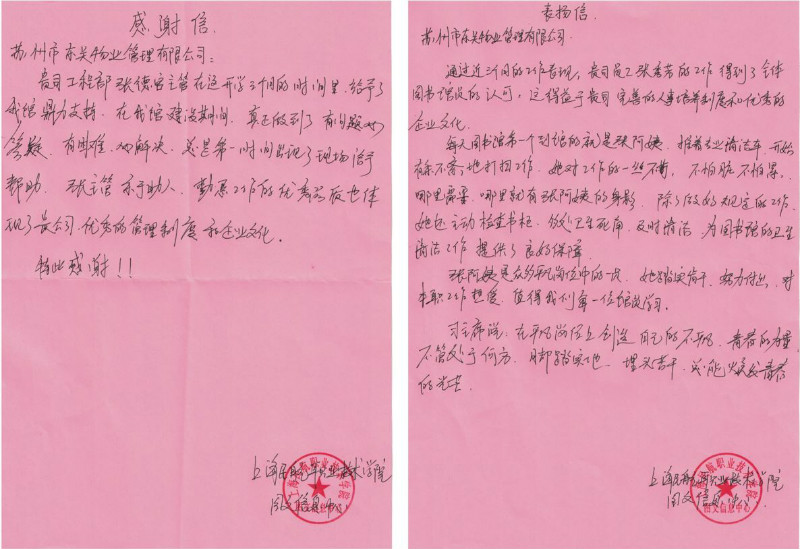 感谢信
苏州市东吴物业管理有限公司：
贵司工程部张德宝主管在近开学三个月的时间里，给予了
我馆鼎力支持，在我馆建设期间，真正做到了有问题必
答疑，有困难必解决，总是第一时间出现了现场给予
帮助。张主管乐于助人、勤恳工作的优秀品质也体
现了贵公司优秀的管理制度和企业文化。
特此感谢！！
上海民航职业技术学院
图文信息中心
表扬信
苏州市东吴物业管理有限公司：
通过近三个月的工作表现，贵司员工张秀芳的工作得到了全体
图书馆员的认可，这得益于贵司完善的人事培养制度和优秀的
企业文化。
每天图书馆第一个到馆的就是张阿姨，推着专业清洁车，开始
有条不紊地打扫工作。她对工作的一丝不苟，不怕脏不怕累，
哪里需要，哪里就有张阿姨的身影，除了做好规定的工作，
她还主动检查书柜，各处卫生死角，及时清洁，为图书馆的卫生
清洁工作提供了良好保障。
张阿姨是众多平凡岗位中的一员，她踏实肯干、努力付出，对
本职工作热爱，值得我们每一位馆员学习。
习主席说：在平凡岗位上创造自己的不平凡，青春的力量
不管处于何方，脚踏实地、埋头苦干，总能焕发青春
的光芒。
上海民航职业技术学院
图文信息中心